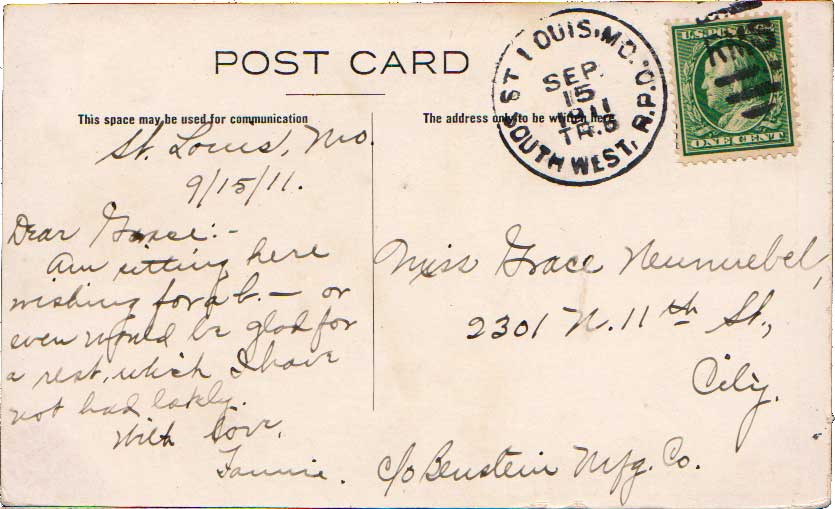 POST CARD
This space may be used for communication
The address only to be written here
ST LOUIS, MO. "O." R.P.O. SOUTH WEST,
SEP.
15
1911
TR.5
U.S. POSTAGE
ONE CENT
St. Louis, Mo.
9/15/11.
Dear Grace:-
Am sitting here
wishing for a b. — or
even would be glad for
a rest, which I have
not had lately.
With love,
Fannie.
Miss Grace
2301 N. 11th St.,
City.
c/o Benstein Mfg. Co.